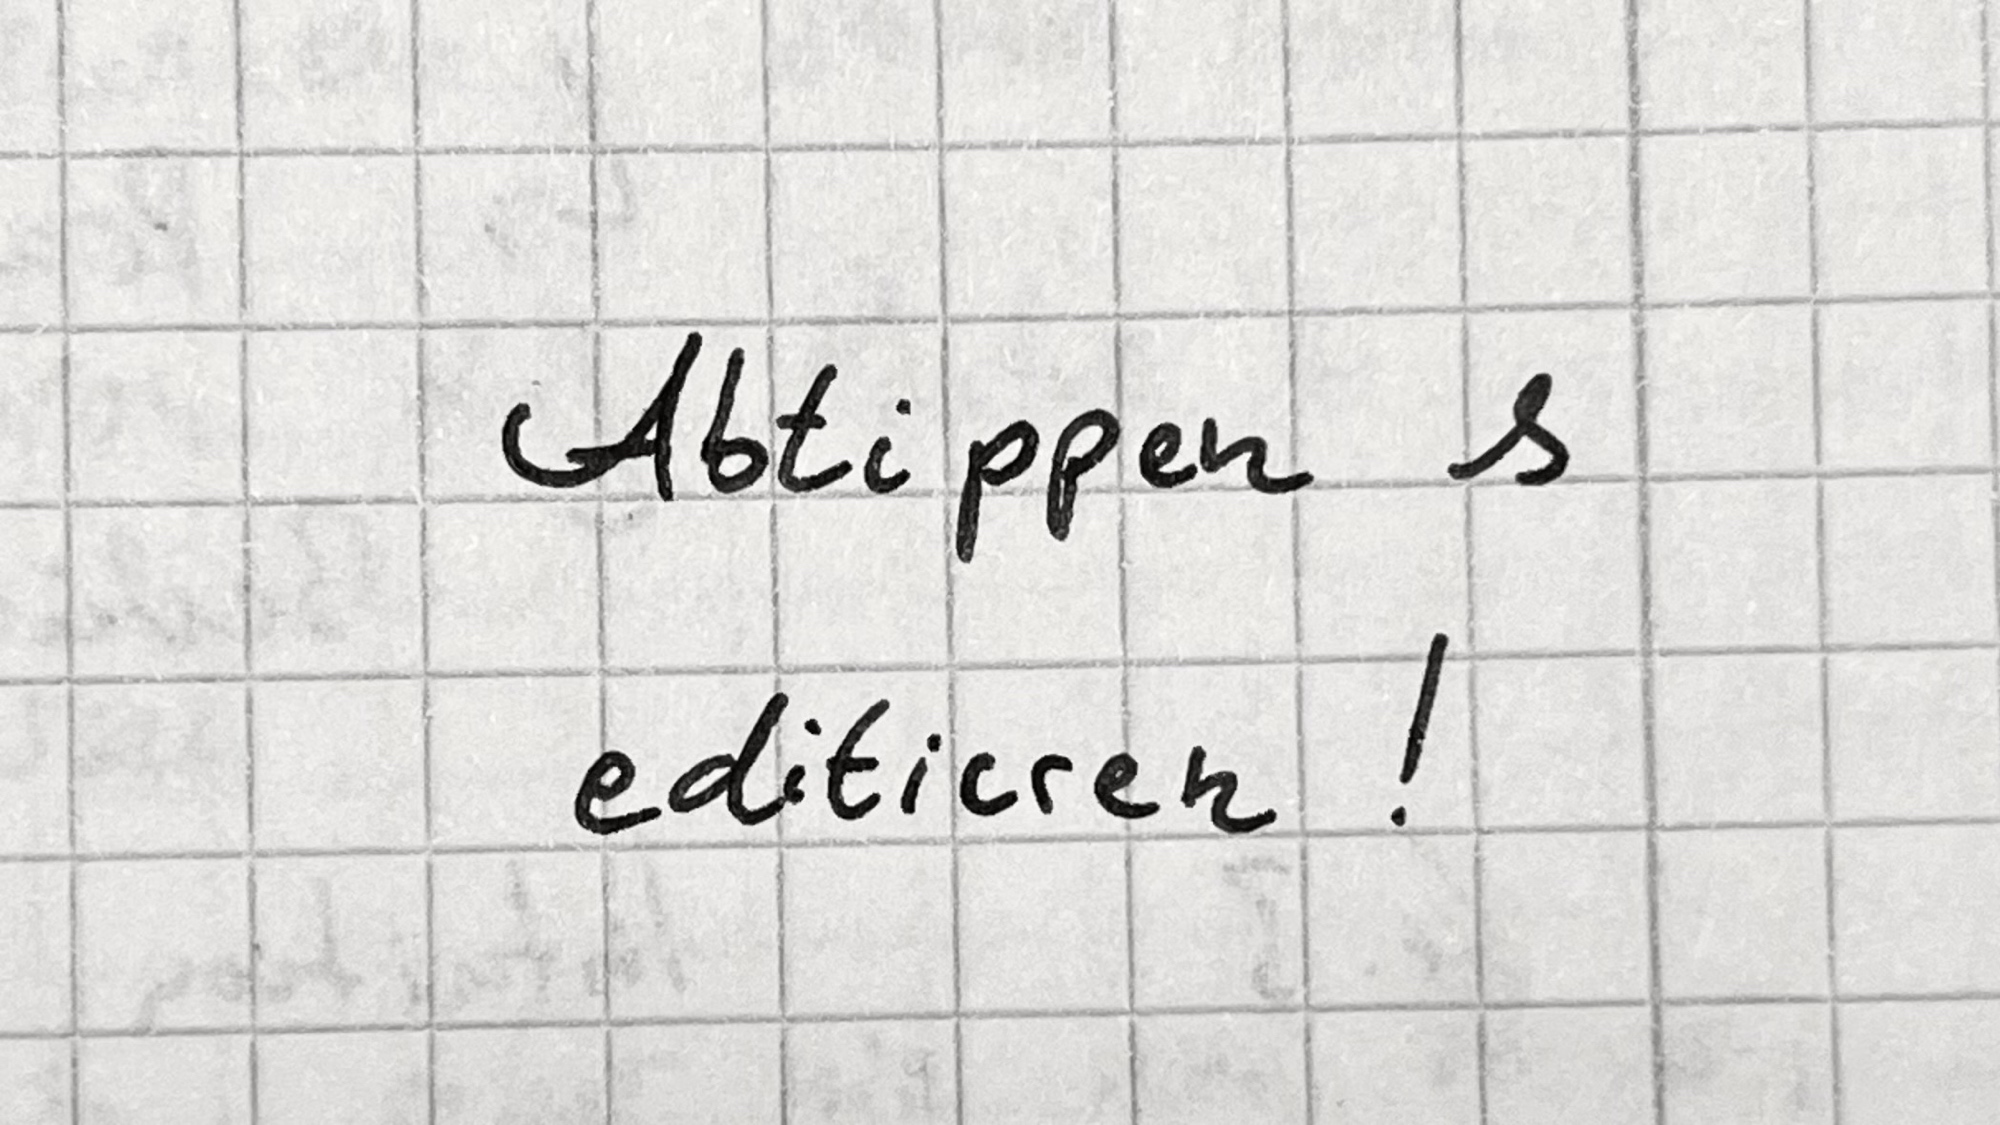 Abtippen &
editieren!